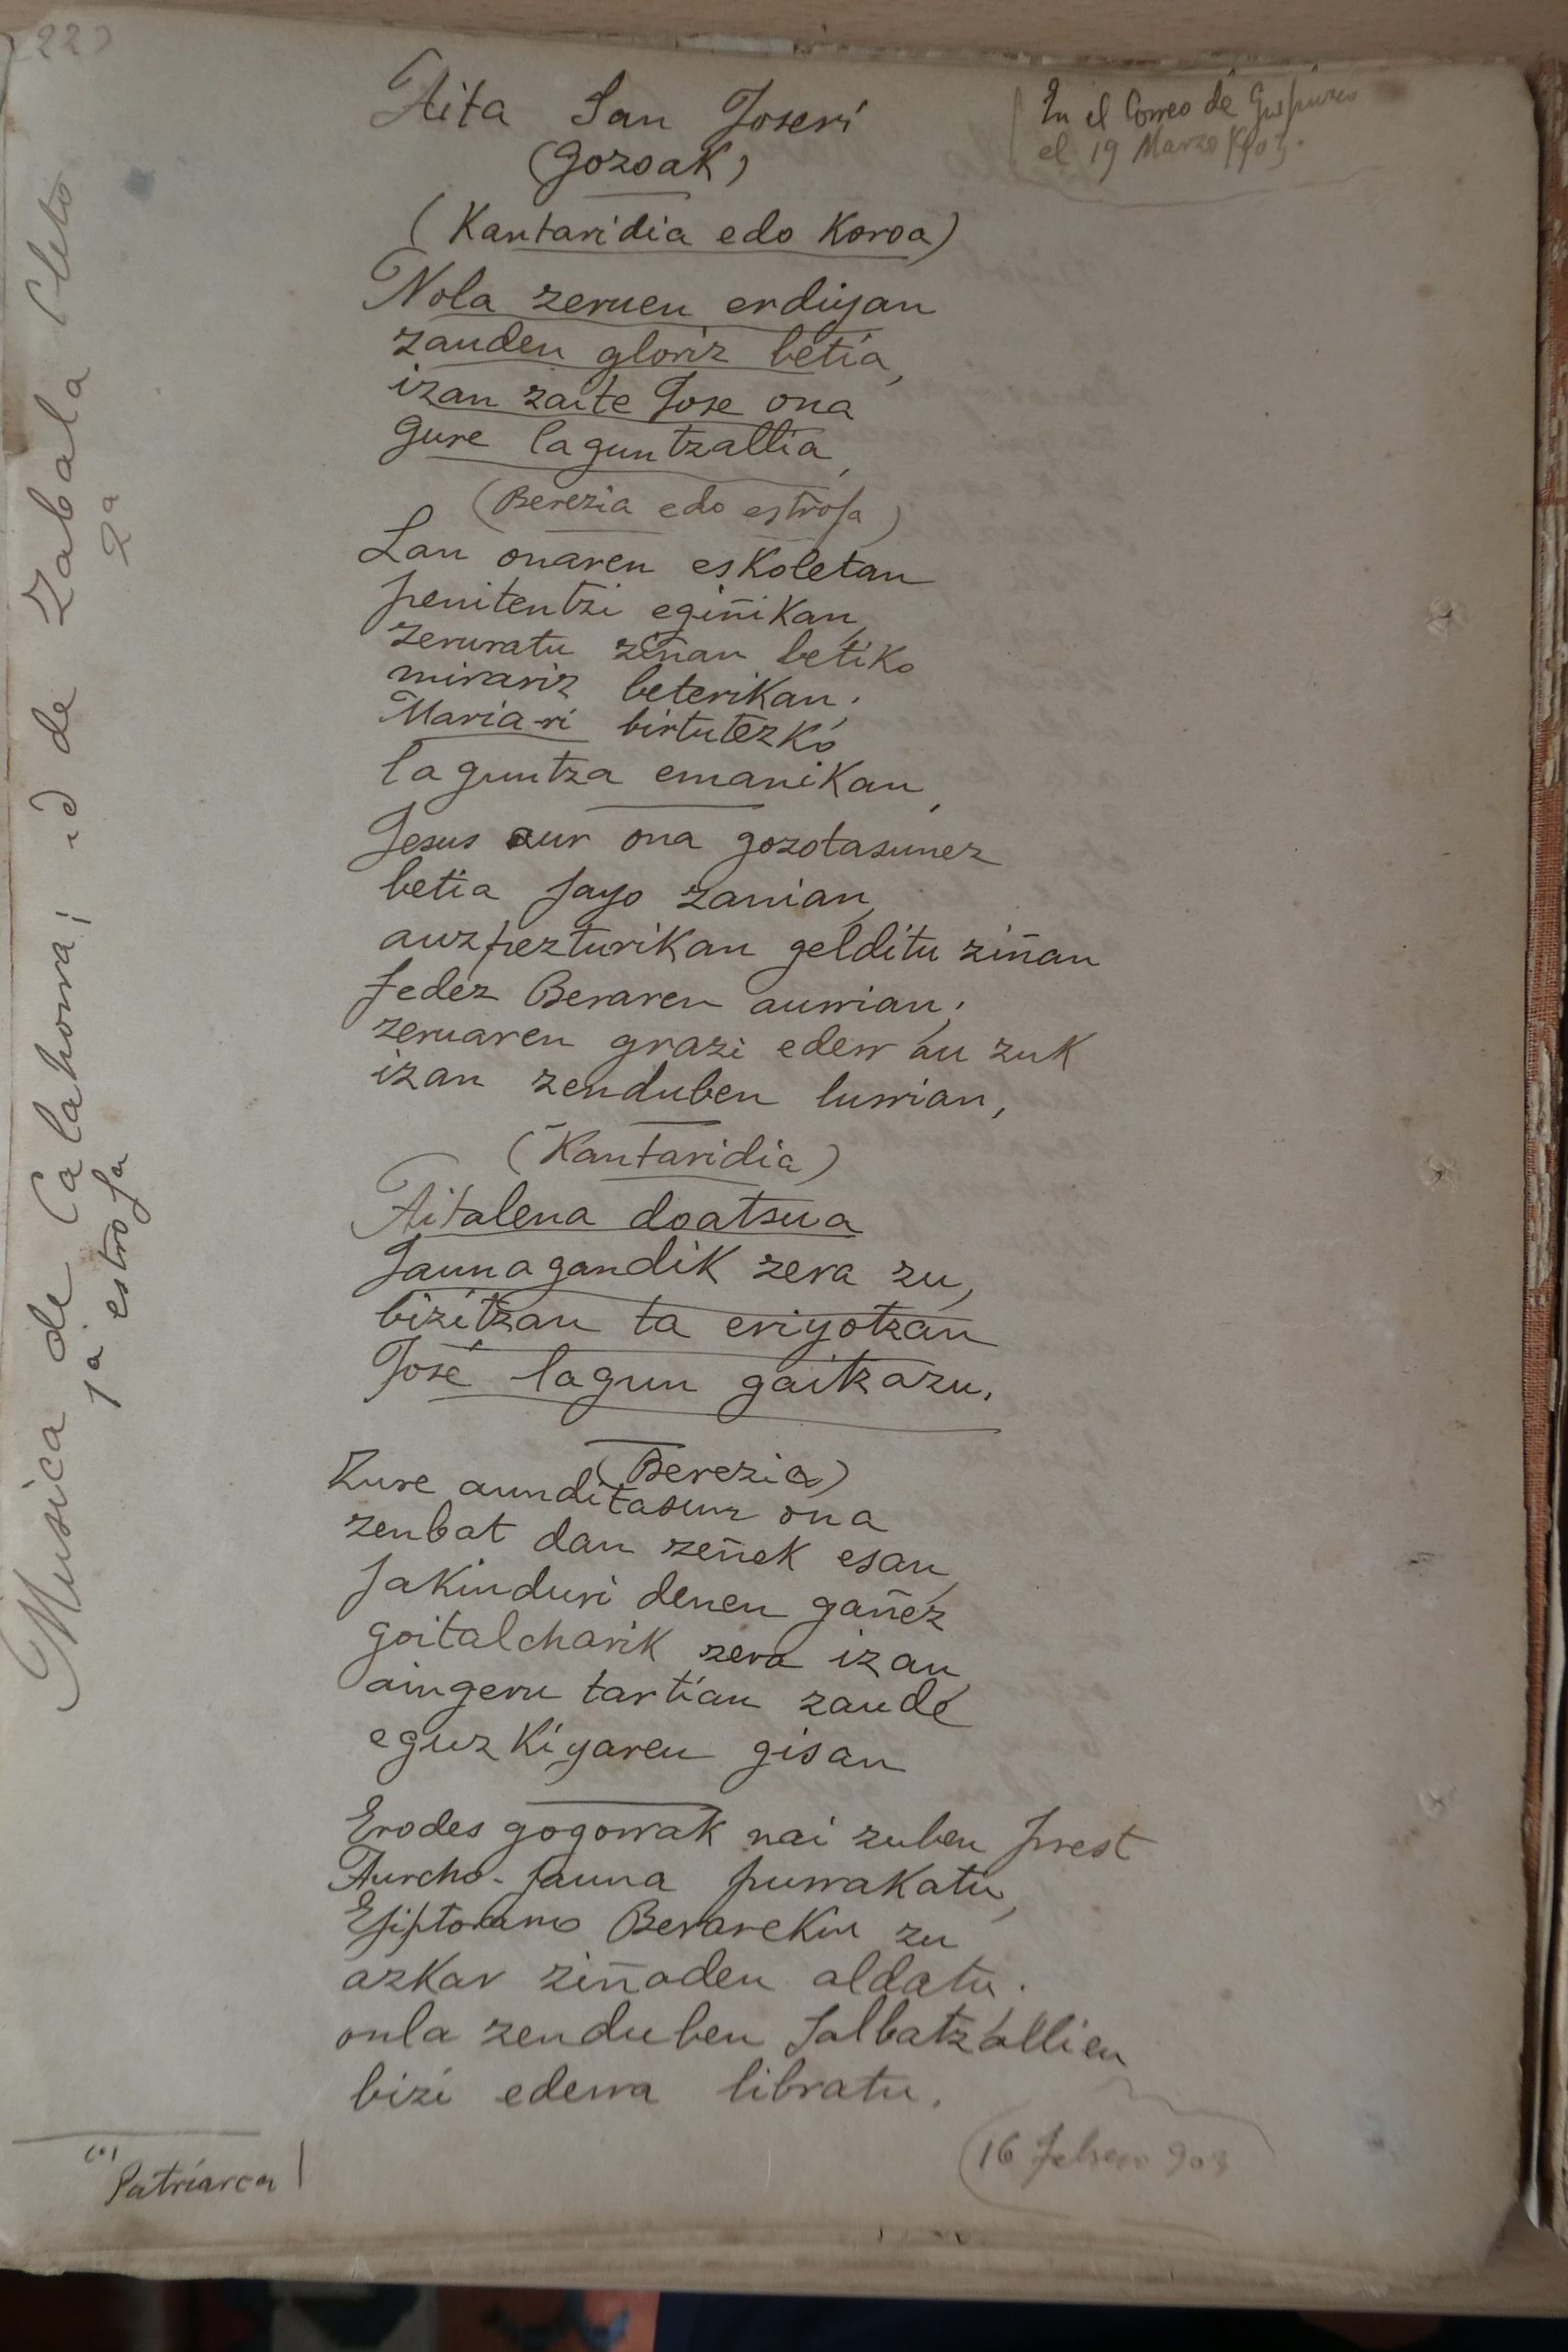 222
Aita San Joseri
(Gozoak)
En el Correo de Guipuzcoa
el 19 Marzo 1903.
(Kantaridia edo Koroa)
Nola zeruen erdiyan
zauden gloriz betia,
izan zaite Jose ona
gure laguntzallia,
(Berezia edo estrofa)
Lan onaren eskoletan
penitentzi egiñikan,
zeruratu ziñan betiko
mirariz beterikan;
Maria-ri birtutezko
laguntza emanikan,
Jesus aur ona gozotasunez
betia jayo zanian,
auzpezturikan gelditu ziñan
fedez Beraren aurrian;
zeruaren grazi ederr au zuk
izan zenduben lurrian,
(Kantaridia)
Aitalena doatsua
Jaunagandik zera zu,
bizitzan ta eriyotzan
José lagun gaitzazu.
(Berezia)
Zure aunditasun ona
zenbat dan zeñek esan,
jakinduri denen gañez
goitalcharik zera izan,
aingeru tartian zaude
eguzkiyaren gisan
Erodes gogorrak nai zuben prest
Aurcho-jauna purrakatu,
Ejiptorano Berarekin zu
azkar ziñaden aldatu.
onla zenduben Salbatzallien
bizi ederra libratu.
(16 febrero 903
(*) Patriarca
Musica de Calahorra; id de Zabala Cleto
1ª estrofa 2ª